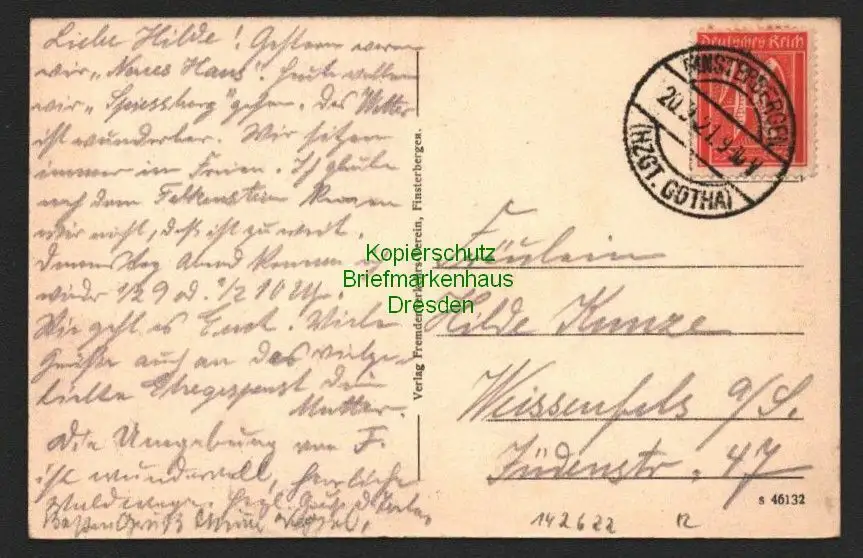 Liebe Hilde! Gestern waren
wir „Neues Haus". Heute wollen
wir „Spiessberg" gehen. Das Wetter
ist wunderbar. Wir sitzen
immer im Freien. Ich glaube
nach dem Falkenstein kommen
wir nicht, das ist zu weit.
Donnerstag Abend kommen
wieder 1/2 9 od. 1/2 10 Uhr.
Wie geht es Euch. Viele
Grüße auch an das
Mutter.
Die Umgebung von F.
ist wundervoll, herrliche
Waldwege. Herzl. Gruß
Besten Gruß
Deutsches Reich
FINSTERBERGEN
20.9.21.9-10 V
(HZGT. GOTHA)
Verlag Fremdenverkehrsverein, Finsterbergen.
Kopierschutz
Briefmarkenhaus
Dresden
Fräulein
Hilde Kunze
Weissenfels a/S.
Jüdenstr. 47
s 46132
142622
12